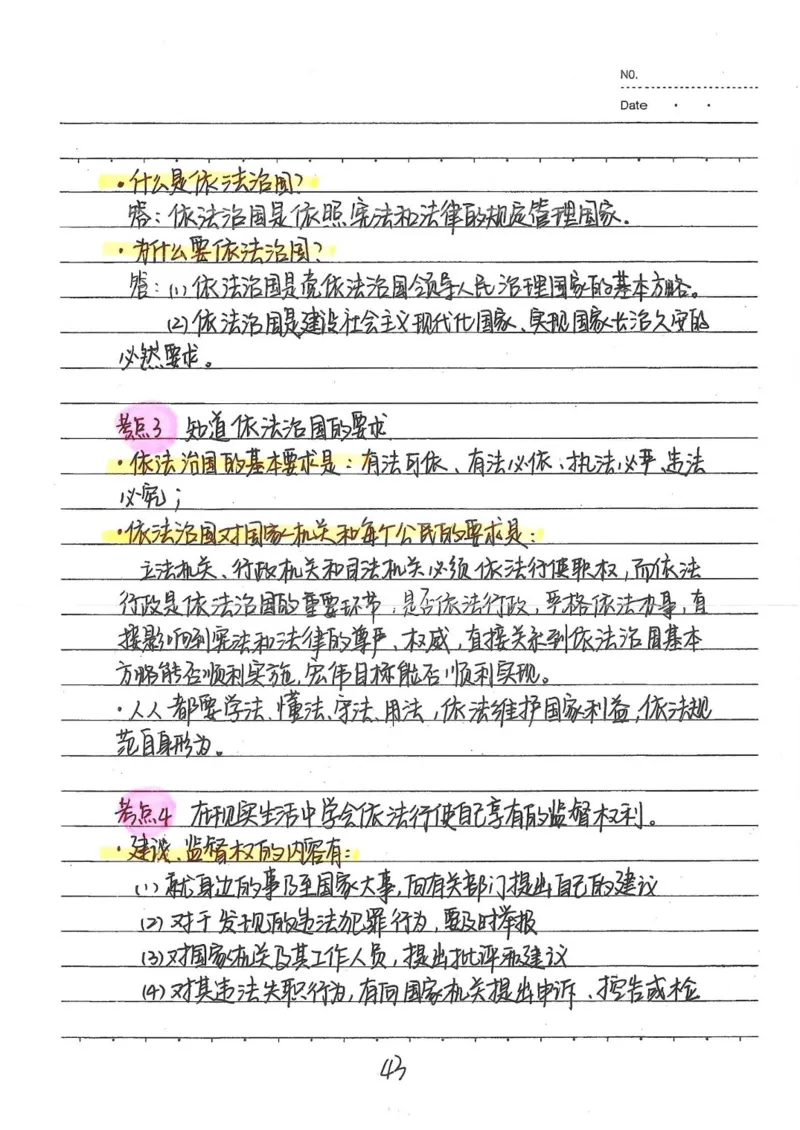 NO.
Date
·什么是依法治国?
答:依法治国是依照宪法和法律的规定管理国家.
·为什么要依法治国?
答:(1)依法治国是党依法治国领导人民治理国家的基本方略。
(2)依法治国是建设社会主义现代化国家、实现国家长治久安的
必然要求。
考点3 知道依法治国的要求
·依法治国的基本要求是:有法可依、有法必依、执法必严、违法
必究;
·依法治国对国家机关和每个公民的要求是:
立法机关、行政机关和司法机关必须依法行使职权,而依法
行政是依法治国的重要环节,是否依法行政,严格依法办事,直
接影响到宪法和法律的尊严、权威,直接关系到依法治国基本
方略能否顺利实施,宏伟目标能否顺利实现。
·人人都要学法、懂法、守法、用法,依法维护国家利益,依法规
范自身形为。
考点4 在现实生活中学会依法行使自己享有的监督权利。
·建议、监督权的内容有:
(1)就身边的事乃至国家大事,向有关部门提出自己的建议
(2)对于发现的违法犯罪行为,要及时举报
(3)对国家机关及其工作人员,提出批评和建议
(4)对其违法失职行为,有向国家机关提出申诉、控告或检
43